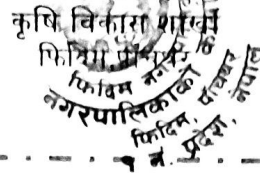 कृषि विकास शाखा
फिदिम, पाँचथर
फिदिम नगर
नगरपालिकाको
फिदिम, पाँचथर
१ नं. प्रदेश, नेपाल